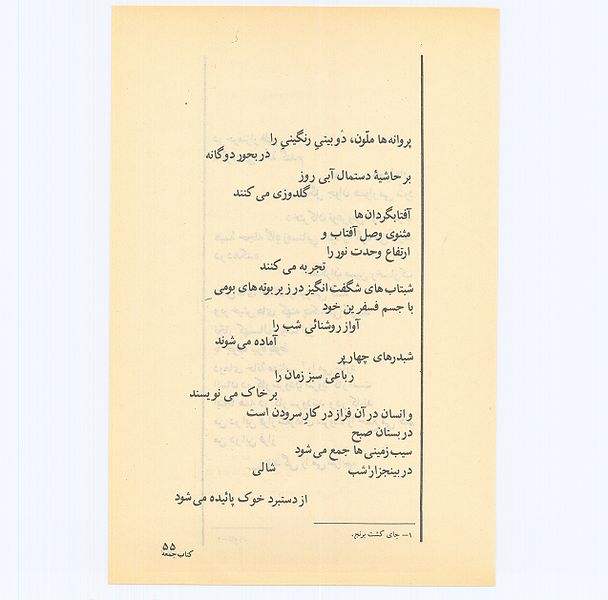 پروانه‌ها ملّون، دُو بیتیِ رنگینیِ را
در بحور دوگانه
بر حاشیهٔ دستمال آبی روز
گلدوزی می کنند
آفتابگردان‌ها
مثنوی وصل آفتاب و
ارتفاع وحدت نور را
تجربه می کنند
شبتاب‌های شگفت‌انگیز در زیر بوته‌های بومی
با جسم فسفرین خود
آواز روشنائی شب را
آماده می‌شوند
شبدرهای چهارپر
رباعی سبز زمان را
بر خاک می نویسند
و انسان در آن فراز در کار سرودن است
در بستان صبح
سیب‌زمینی‌ها جمع می‌شود
در بینجزار۱ شب شالی
از دستبرد خوک پائیده می‌شود
۱– جای کشت برنج.
۵۵
کتاب جمعه